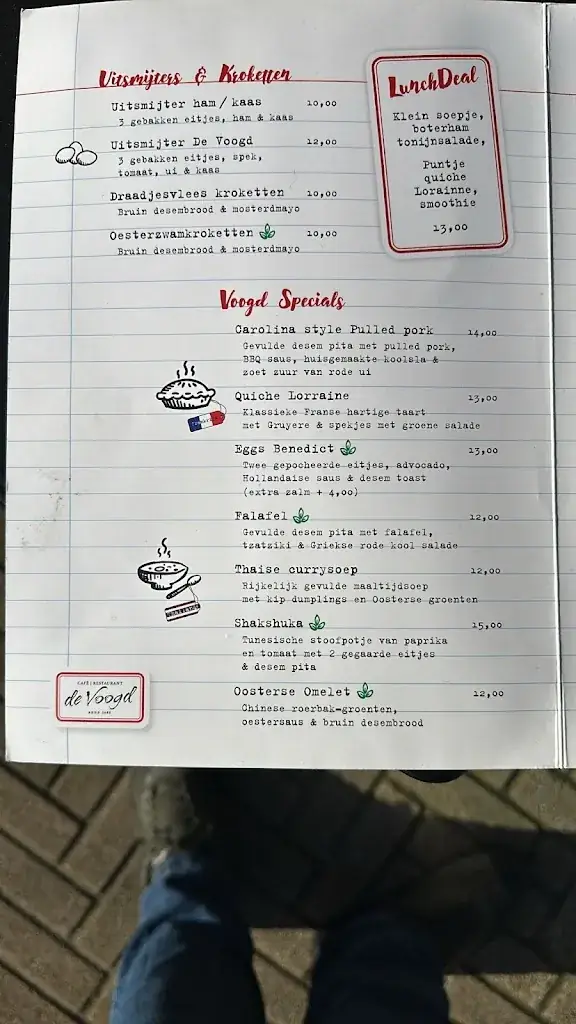 Uitsmijters & Kroketten
Uitsmijter ham / kaas 10,00
3 gebakken eitjes, ham & kaas
Uitsmijter De Voogd 12,00
3 gebakken eitjes, spek,
tomaat, ui & kaas
Draadjesvlees kroketten 10,00
Bruin desembrood & mosterdmayo
Oesterzwamkroketten 10,00
Bruin desembrood & mosterdmayo
LunchDeal
Klein soepje,
boterham
tonijnsalade,
Puntje
quiche
Lorainne,
smoothie
13,00
Voogd Specials
Carolina style Pulled pork 14,00
Gevulde desem pita met pulled pork,
BBQ saus, huisgemaakte koolsla &
zoet zuur van rode ui
Quiche Lorraine 13,00
Klassieke Franse hartige taart
met Gruyere & spekjes met groene salade
Eggs Benedict 13,00
Twee gepocheerde eitjes, advocado,
Hollandaise saus & desem toast
(extra zalm + 4,00)
Falafel 12,00
Gevulde desem pita met falafel,
tzatziki & Griekse rode kool salade
Thaise currysoep 12,00
Rijkelijk gevulde maaltijdsoep
met kip dumplings en Oosterse groenten
Shakshuka 15,00
Tunesische stoofpotje van paprika
en tomaat met 2 gegaarde eitjes
& desem pita
Oosterse Omelet 12,00
Chinese roerbak-groenten,
oestersaus & bruin desembrood
CAFÉ | RESTAURANT
de Voogd